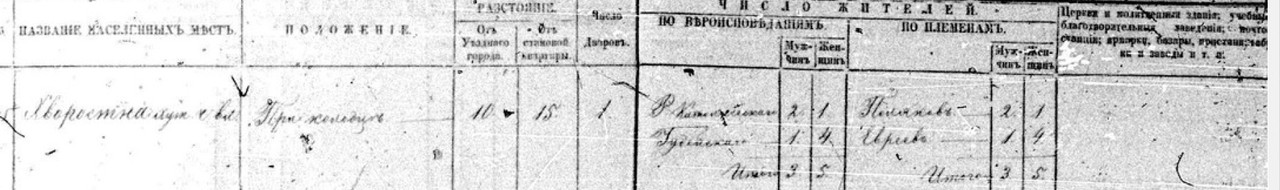 ЧИСЛО ЖИТЕЛЕЙ.
РАЗСТОЯНІЕ.
НАЗВАНІЕ НАСЕЛЕННЫХЪ МѢСТЪ.
ПОЛОЖЕНІЕ.
Отъ Уѣзднаго города.
Отъ становой квартиры.
Число Дворовъ.
ПО ВѢРОИСПОВѢДАНІЯМЪ.
Муж-чинъ
Жен-щинъ
ПО ПЛЕМЕНАМЪ.
Муж-чинъ
Жен-щинъ
Церкви и молитвенныя зданія; учебныя
благотворительныя заведенія; почто
станціи; ярмарки, базары, пристани, фаб
ки и заводы и т. п.
Хворостна хут
При колодцѣ
10 15 1
Р Католическаго 2 1 Поляковъ 2 1
Іудейскаго 1 4 Евреевъ 1 4
Итого 3 5 Итого 3 5